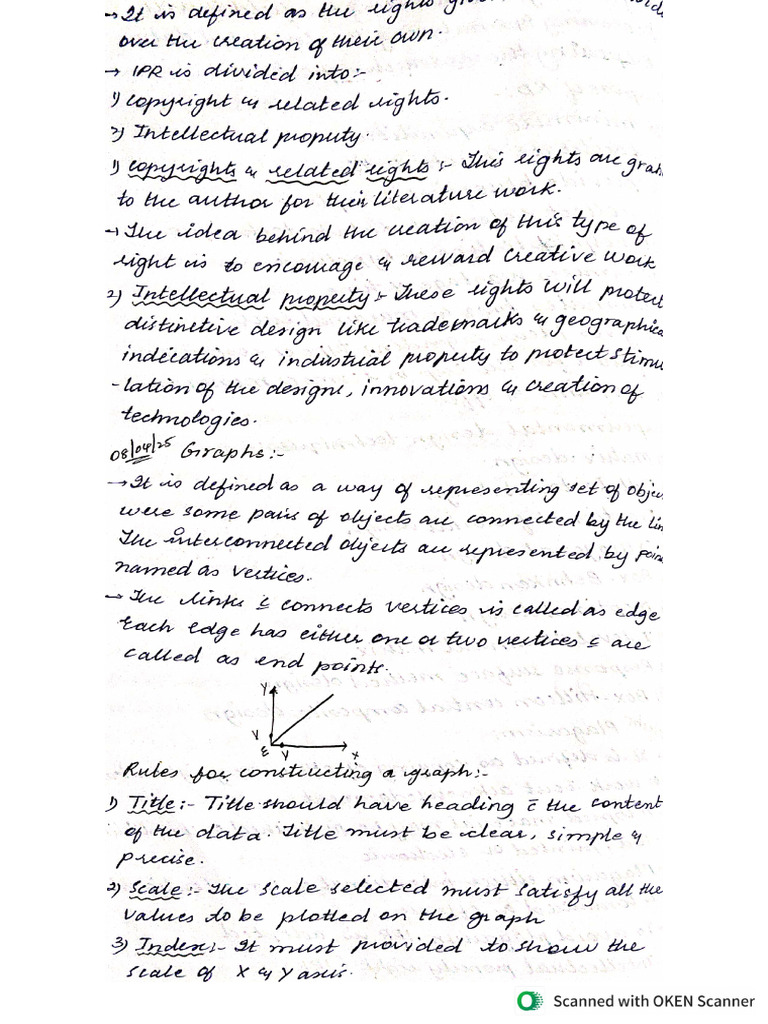 → It is defined as the rights
over the creation of their own.
→ IPR is divided into:-
1) copyright & related rights.
2) Intellectual property.
1) copyrights & related rights :- This rights are gran
to the author for their literature work.
→ The idea behind the creation of this type of
right is to encourage & reward creative work
2) Intellectual property :- These rights will protect
distinctive design like trademarks & geographica
indications & industrial property to protect stimu
-lation of the designe, innovations & creation of
technologies.
08/04/25 Graphs:-
→ It is defined as a way of representing set of objec
were some pairs of objects are connected by the lin
The interconnected objects are represented by poin
named as vertices.
→ The links c̄ connects vertices is called as edge
Each edge has either one or two vertices c̄ are
called as end points.
Y
V
E V X
Rules for constructing a graph:-
1) Title:- Title should have heading c̄ the content
of the data. Title must be clear, simple &
precise.
2) Scale:- The scale selected must satisfy all the
values to be plotted on the graph
3) Index:- It must provided to show the
scale of X & Y axis.
Scanned with OKEN Scanner